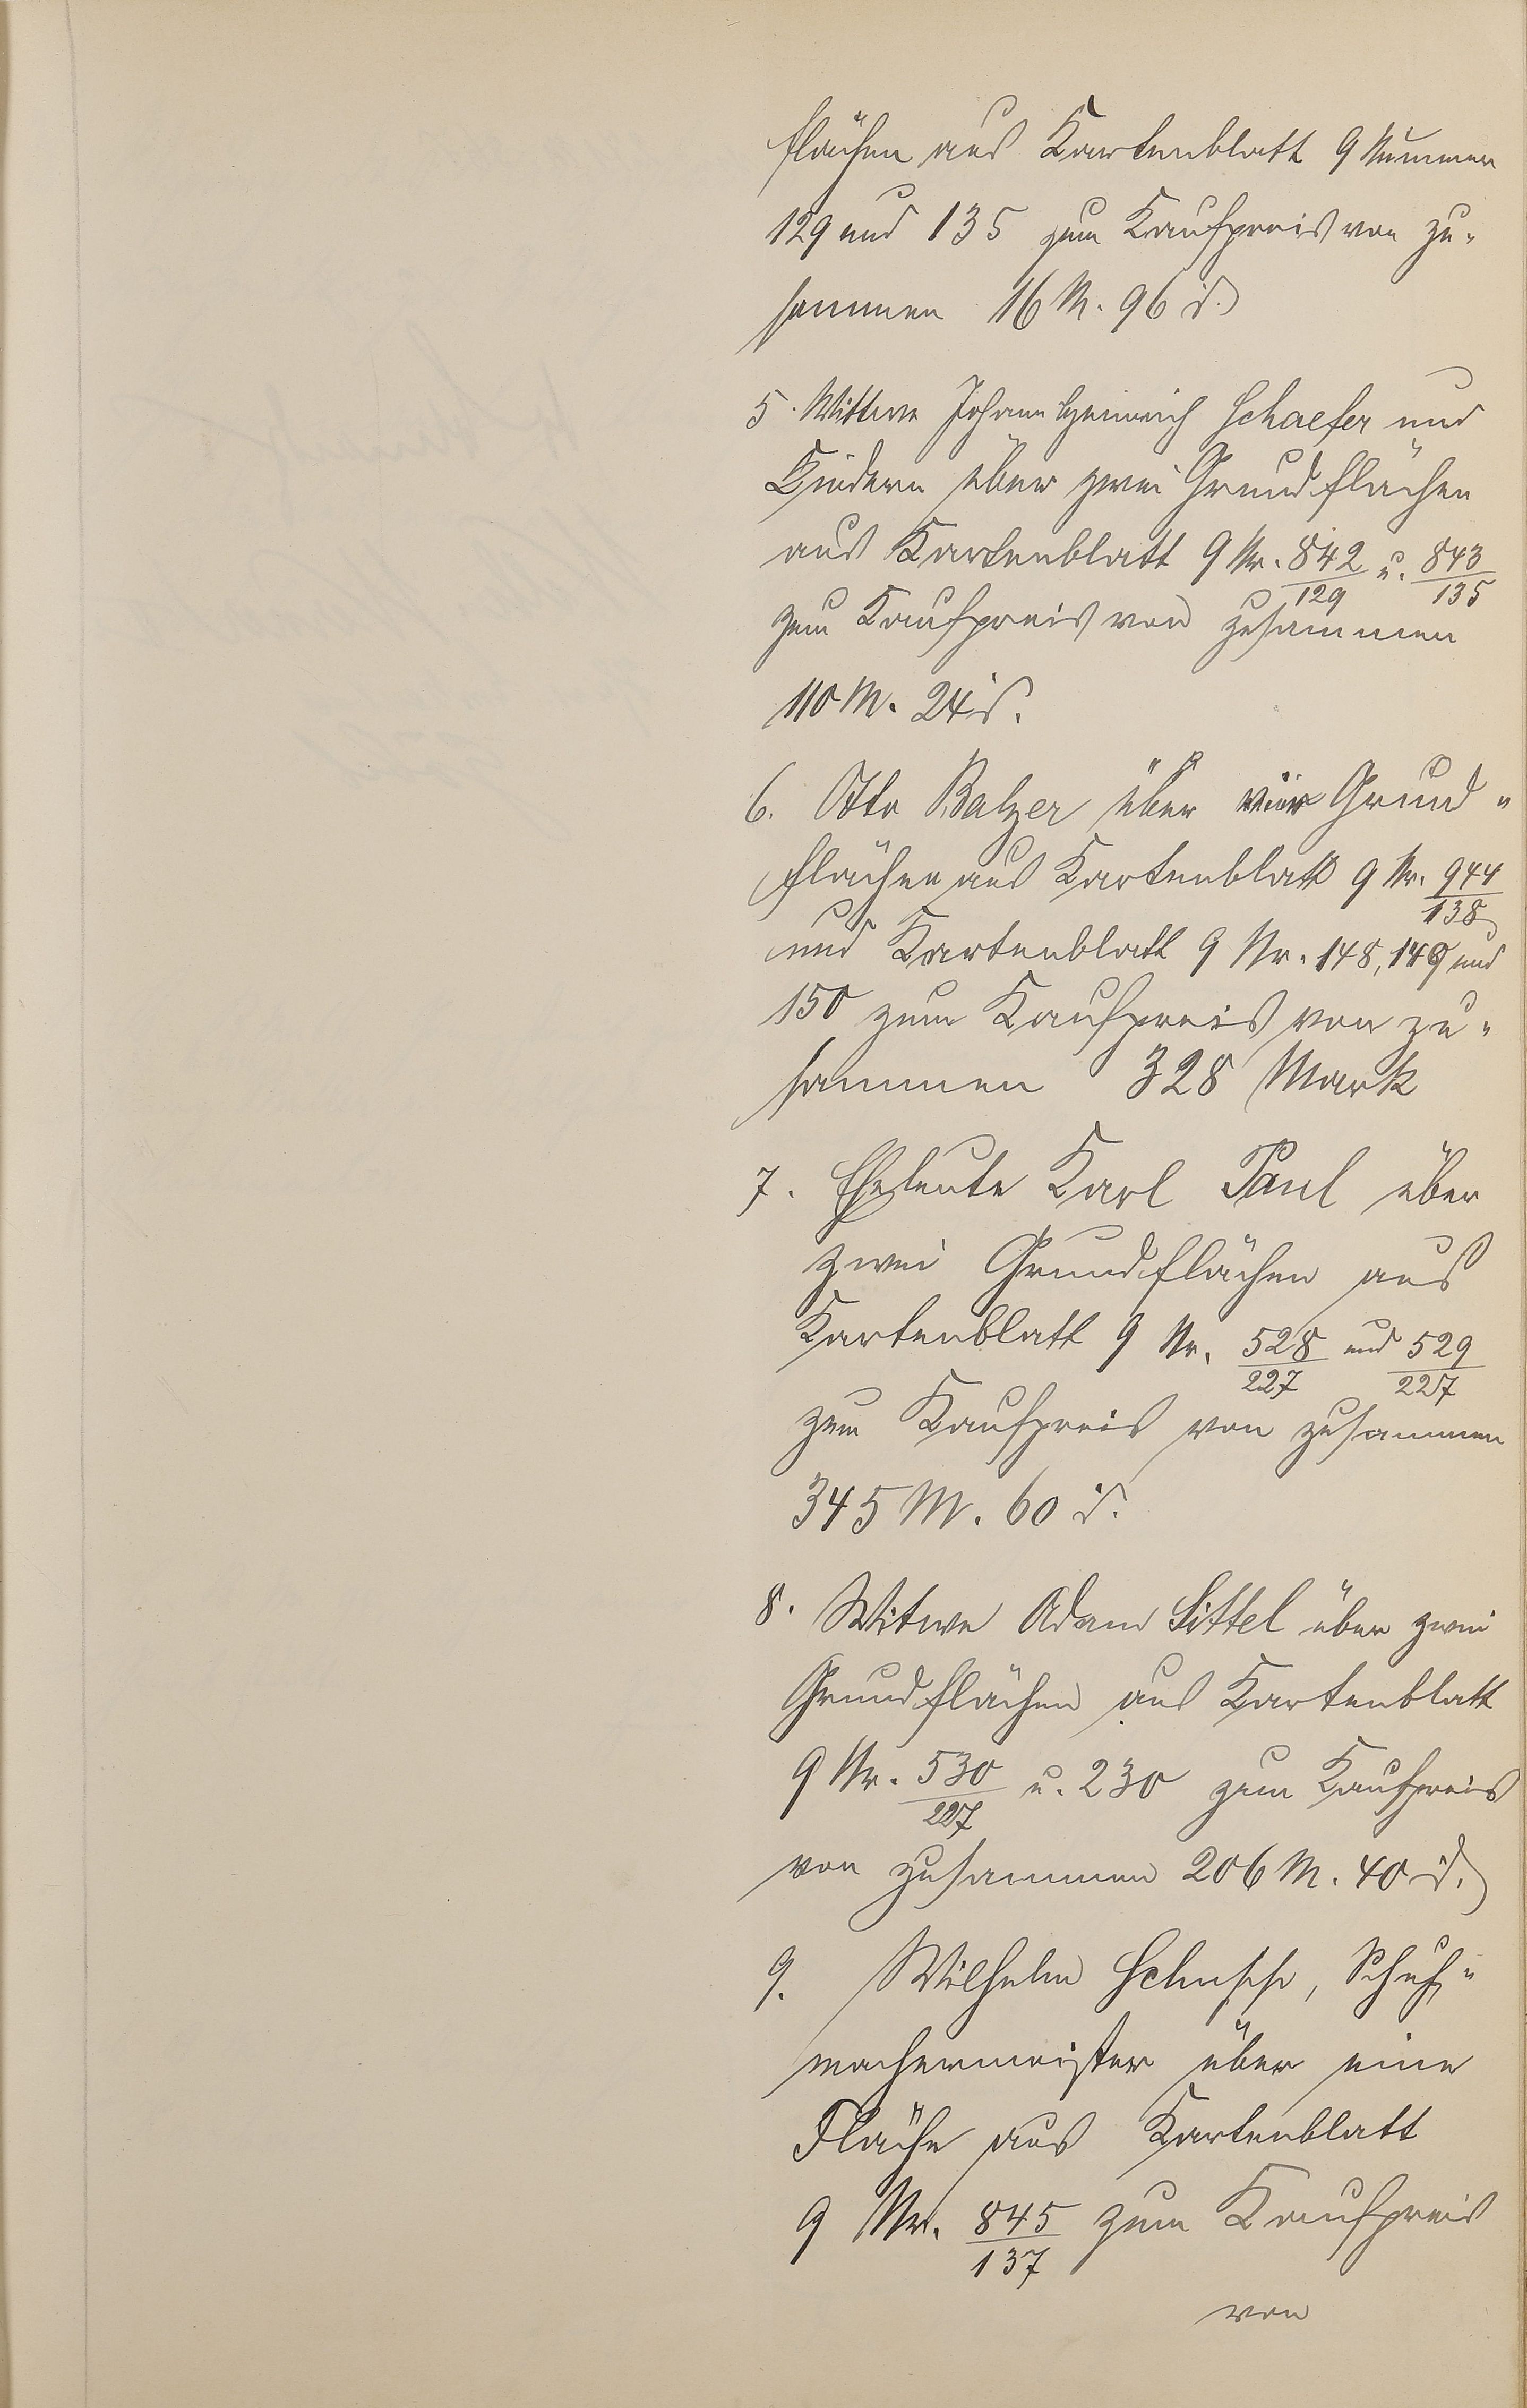 flächen aus Kartenblatt 9 Nummer
129 und 135 zum Kaufpreis von zu-
sammen 16 M. 96 d.
5. Wittwe Johann Heinrich Schaefer und
Kindern über zwei Grundflächen
aus Kartenblatt 9 Nr. 842/129 u. 843/135
zum Kaufpreis von zusammen
110 M. 24 d.
6. Otto Balzer über vier Grund-
flächen aus Kartenblatt 9 Nr. 944/138
und Kartenblatt 9 Nr. 148, 149 und
150 zum Kaufpreis von zu-
sammen 328 Mark
7. Eheleute Karl Paul über
zwei Grundflächen aus
Kartenblatt 9 Nr. 528/227 und 529/227
zum Kaufpreis von zusammen
345 M. 60 d.
8. Witwe Adam Sittel über zwei
Grundflächen aus Kartenblatt
9 Nr. 530/227 u. 230 zum Kaufpreis
von zusammen 206 M. 40 d.
9. Wilhelm Schuh-
machermeister über eine
Fläche aus Kartenblatt
9 Nr. 845/137 zum Kaufpreis
von